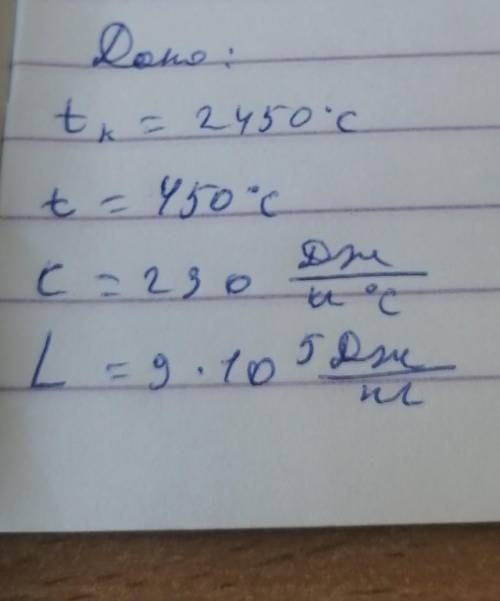 Дано:
tк = 2450°C
t = 450°C
C = 230 Дж/кг°C
L = 9 · 10⁵ Дж/кг